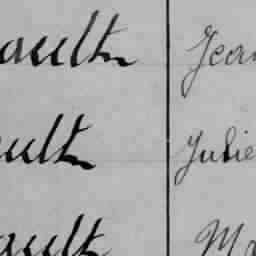 ault Jean
ult Julie
ault Ma